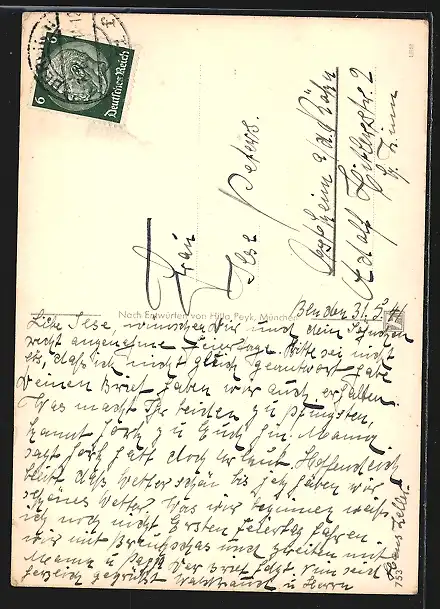 6 6
Deutsches Reich
Frau
Ilse Peters.
Ostheim v/d. Rhön
Adolf Hitlerstr. 2
b/
Nach Entwürfen von Hilla Peyk, München
Bln den 31. 5. 41
Liebe Ilse, wünschen Dir und dein
recht angenehme Feiertage. Bitte sei nicht
bös, daß ich nicht gleich geantwortet habe
Deinen Brief haben wir auch erhalten.
Was macht Ihr beiden zu Pfingsten,
kommt zu Euch hin. Mama
sagt hat doch Urlaub. Hoffentlich
bleibt das Wetter schön bis jetzt haben wir
schönes Wetter. Was wir beginnen weiß
ich noch nicht Ersten Feiertag fahren
wir mit und zweiten mit
Mama u Papa Der Brief folgt nun seid
herzlich gegrüßt Waldtraud u
753